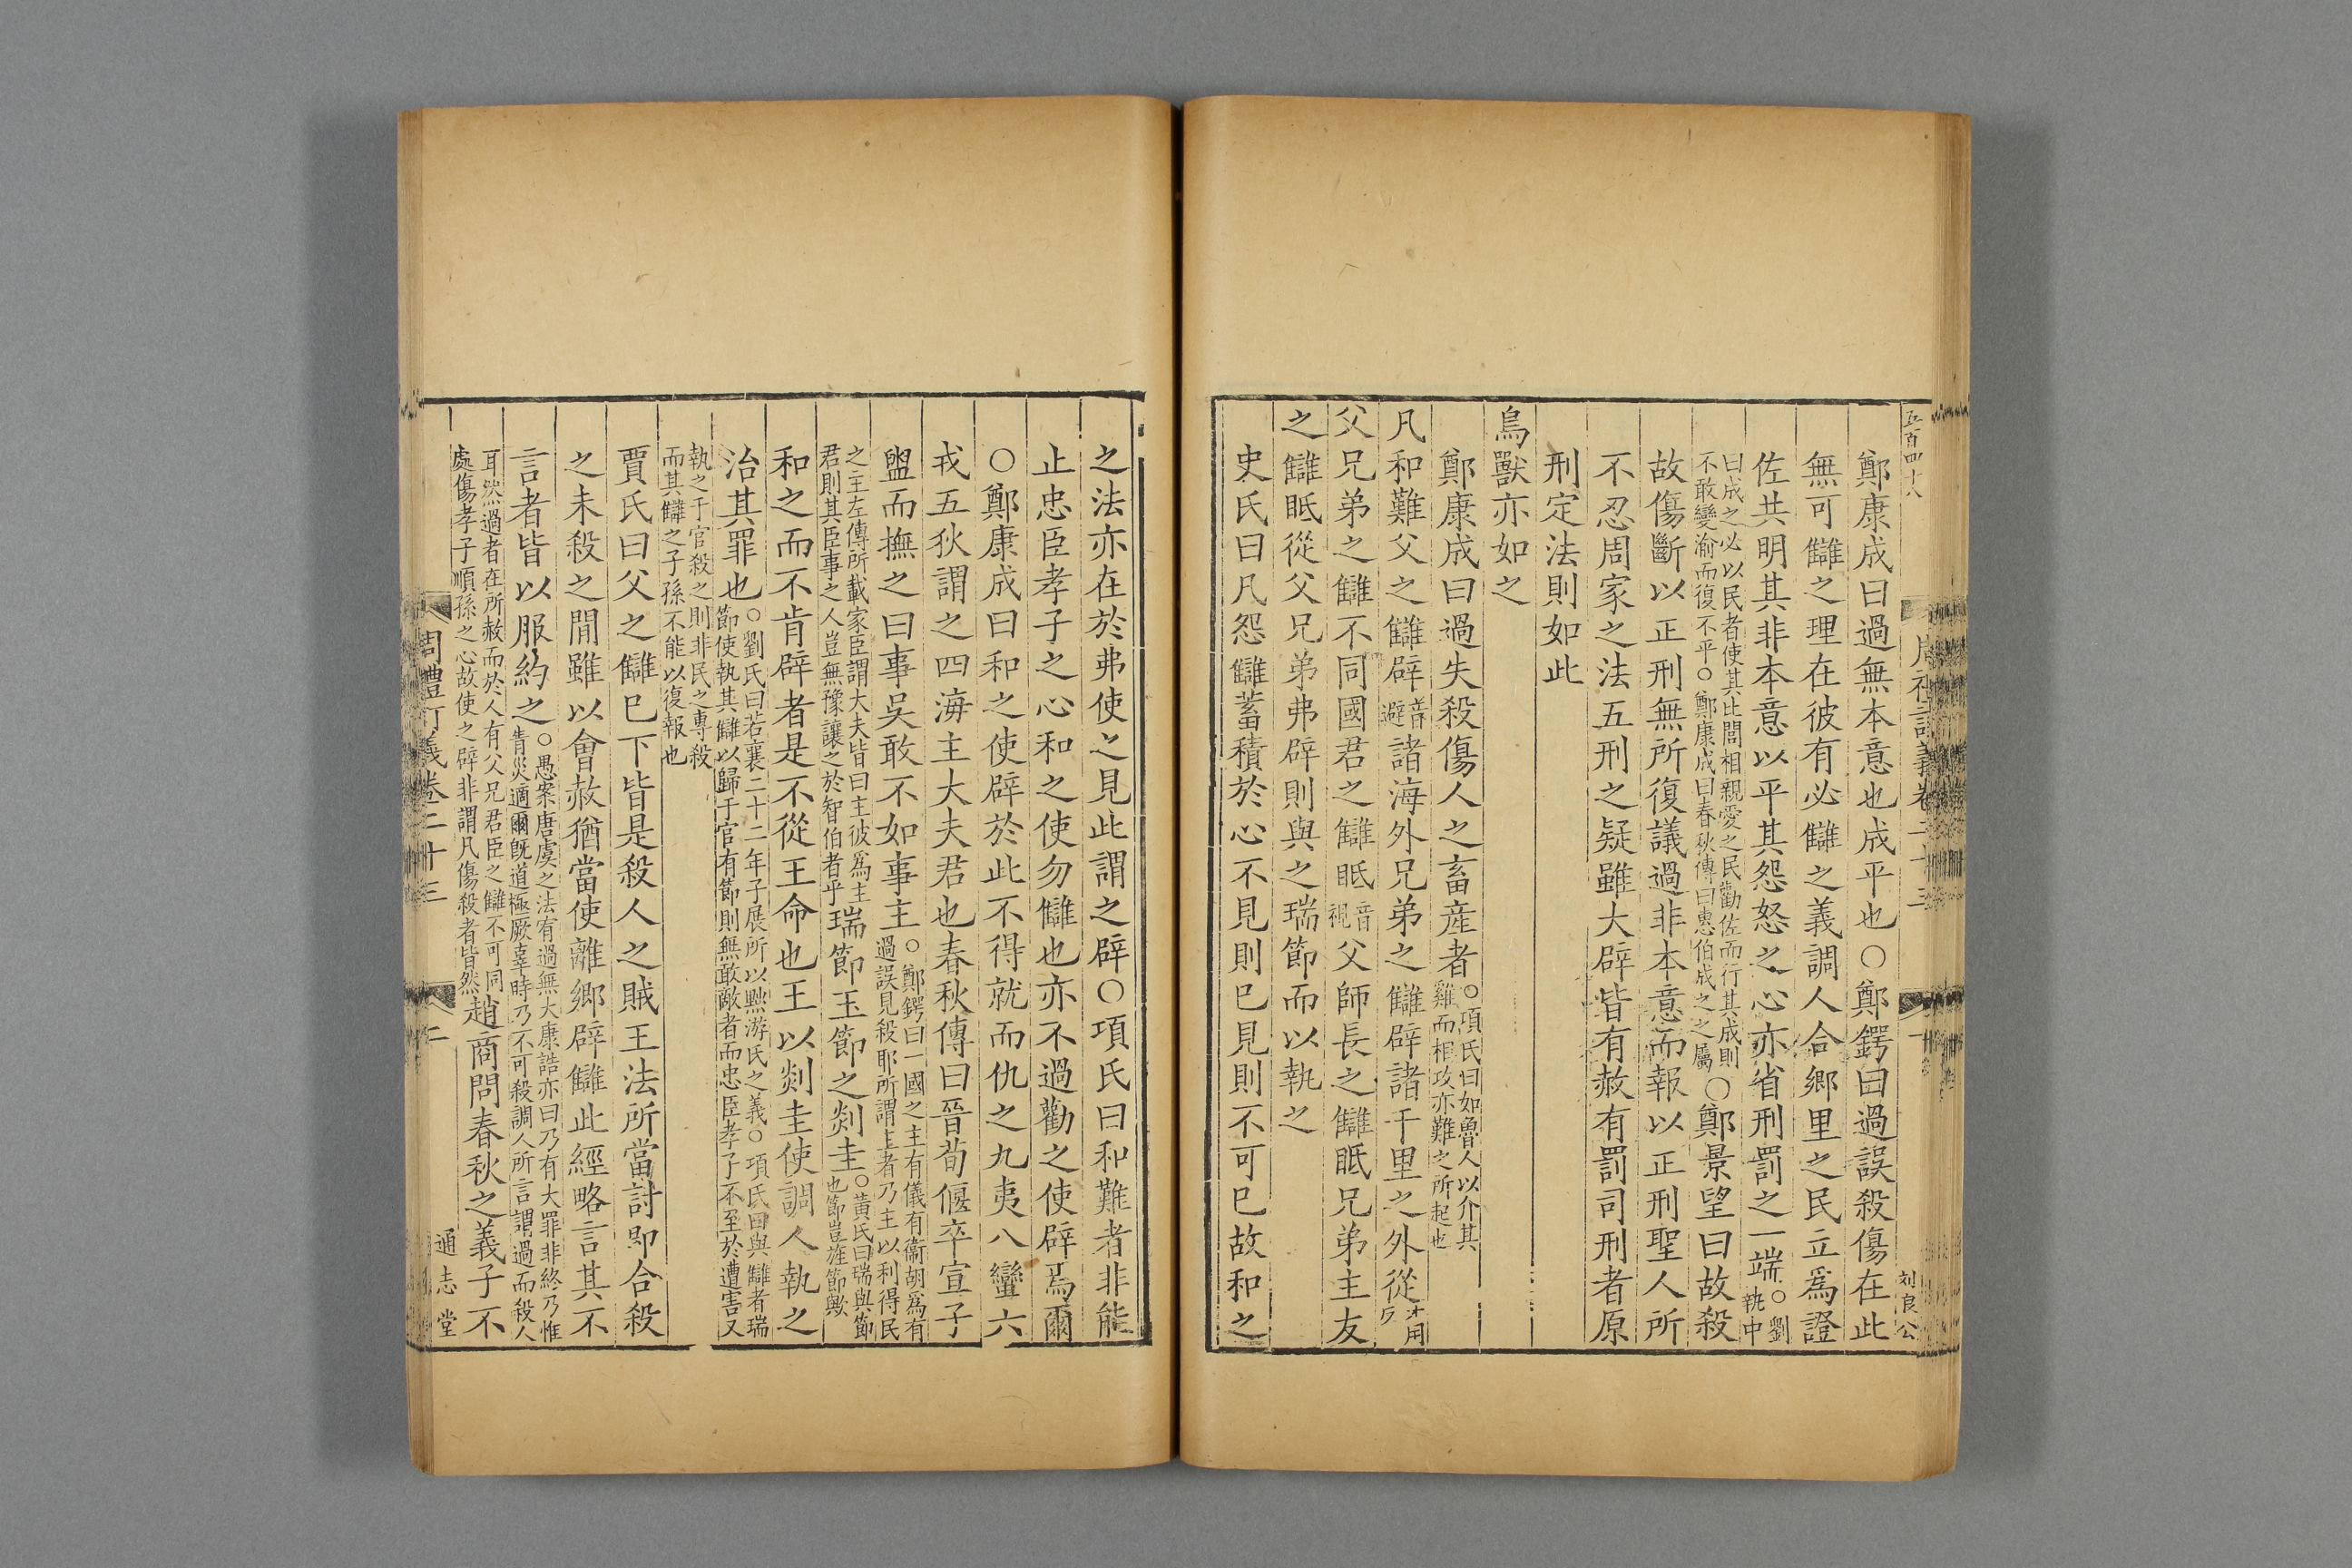 五百四十八
鄭康成曰過無本意也成平也○鄭鍔曰過誤殺傷在此
無可讎之理在彼有必讎之義調人合鄉里之民立爲證
佐共明其非本意以平其怨怒之心亦省刑罰之一端○劉執中
曰成之必以民者使其比閭相親愛之民勸佐而行其成則
不敢變渝而復不平○鄭康成曰春秋傳曰惠伯成之之屬○鄭景望曰故殺
故傷斷以正刑無所復議過非本意而報以正刑聖人所
不忍周家之法五刑之疑雖大辟皆有赦有罰司刑者原
刑定法則如此
鳥獸亦如之
鄭康成曰過失殺傷人之畜産者○項氏曰如魯人以介其
雞而相攻亦難之所起也
凡和難父之讎辟音避諸海外兄弟之讎辟諸千里之外從才用反
父兄弟之讎不同國君之讎眡音視父師長之讎眡兄弟主友
之讎眡從父兄弟弗辟則與之瑞節而以執之
史氏曰凡怨讎蓄積於心不見則已見則不可已故和之
周禮訂義卷二十三
一
刘良公
之法亦在於弗使之見此謂之辟○項氏曰和難者非能
止忠臣孝子之心和之使勿讎也亦不過勸之使辟焉爾
○鄭康成曰和之使辟於此不得就而仇之九夷八蠻六
戎五狄謂之四海主大夫君也春秋傳曰晉荀偃卒宣子
盥而撫之曰事吳敢不如事主○鄭鍔曰一國之主有儀有衛胡爲有
過誤見殺耶所謂主者乃主以利得民
之主左傳所載家臣謂大夫皆曰主彼爲主
君則其臣事之人豈無豫讓之於智伯者乎瑞節玉節之剡圭○黃氏曰瑞與節
也節豈旌節歟
和之而不肯辟者是不從王命也王以剡圭使調人執之
治其罪也○劉氏曰若襄二十二年子展所以黜游氏之義○項氏曰與讎者瑞
節使執其讎以歸于官有節則無敢敵者而忠臣孝子不至於遭害又
執之于官殺之則非民之專殺
而其讎之子孫不能以復報也
賈氏曰父之讎巳下皆是殺人之賊王法所當討卽合殺
之未殺之閒雖以會赦猶當使離鄉辟讎此經略言其不
言者皆以服約之○愚案唐虞之法宥過無大康誥亦曰乃有大罪非終乃惟
眚災適爾旣道極厥辜時乃不可殺調人所言謂過而殺人
耳然過者在所赦而於人有父兄君臣之讎不可同
處傷孝子順孫之心故使之辟非謂凡傷殺者皆然趙商問春秋之義子不
周禮訂義卷二十三
二
通志堂